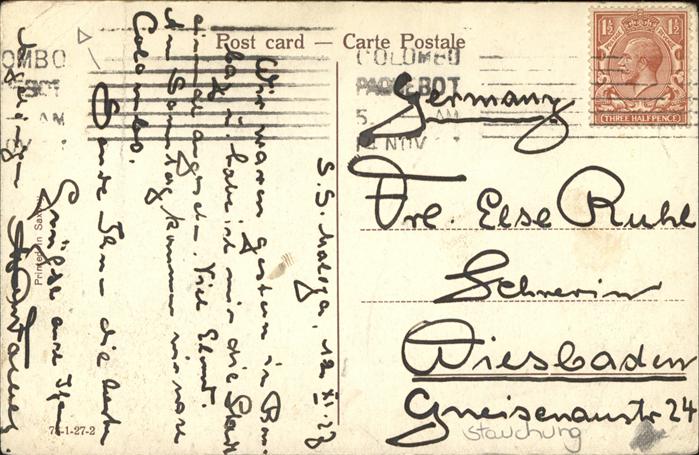 Post card — Carte Postale
COLOMBO
PAQUEBOT
5. AM
14 NOV
1½ 1½
THREE HALFPENCE
Germany
Frl. Else Ruhl
Schwerin
Wiesbaden
Gneisenaustr 24
stauchung
S.S. Maloja, 12. XI. 27
Wir waren gestern in Bom-
bay u. habe ich mir die Stadt
einmal angeseh. Viel Elend.
Am Sonntag kommen wir nach
Colombo.
Sende Ihnen die besten
Grüsse auch Ihren
OMBO
BOT
AM
OV
Printed in Saxony
7-1-27-2